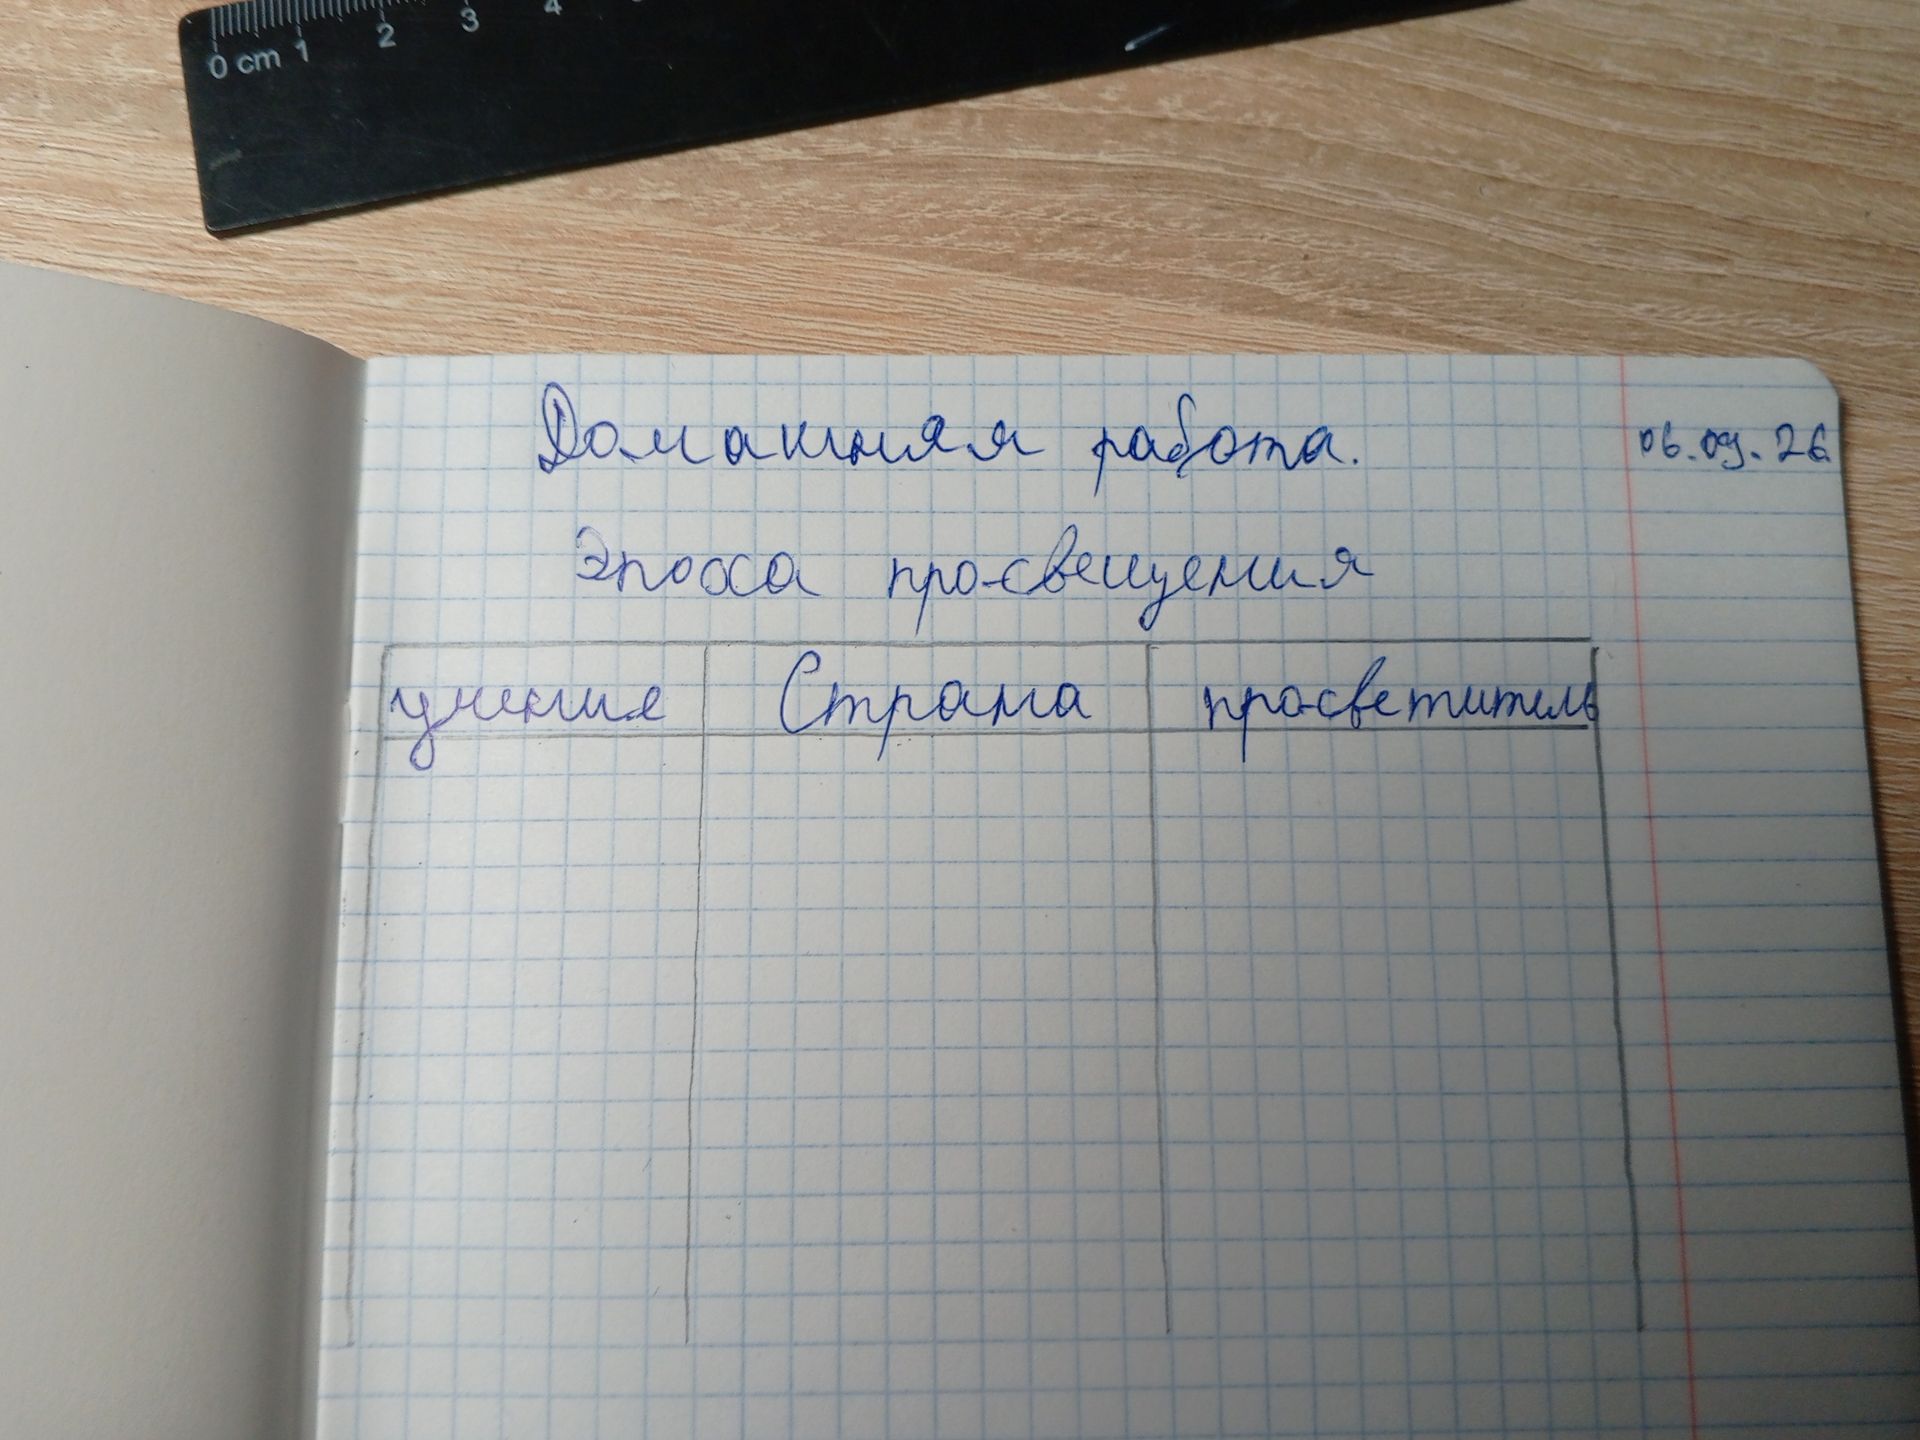 0 cm 1 2 3 4
Домашняя работа. 06.09.26
Эпоха просвещения
учение Страна просветитель